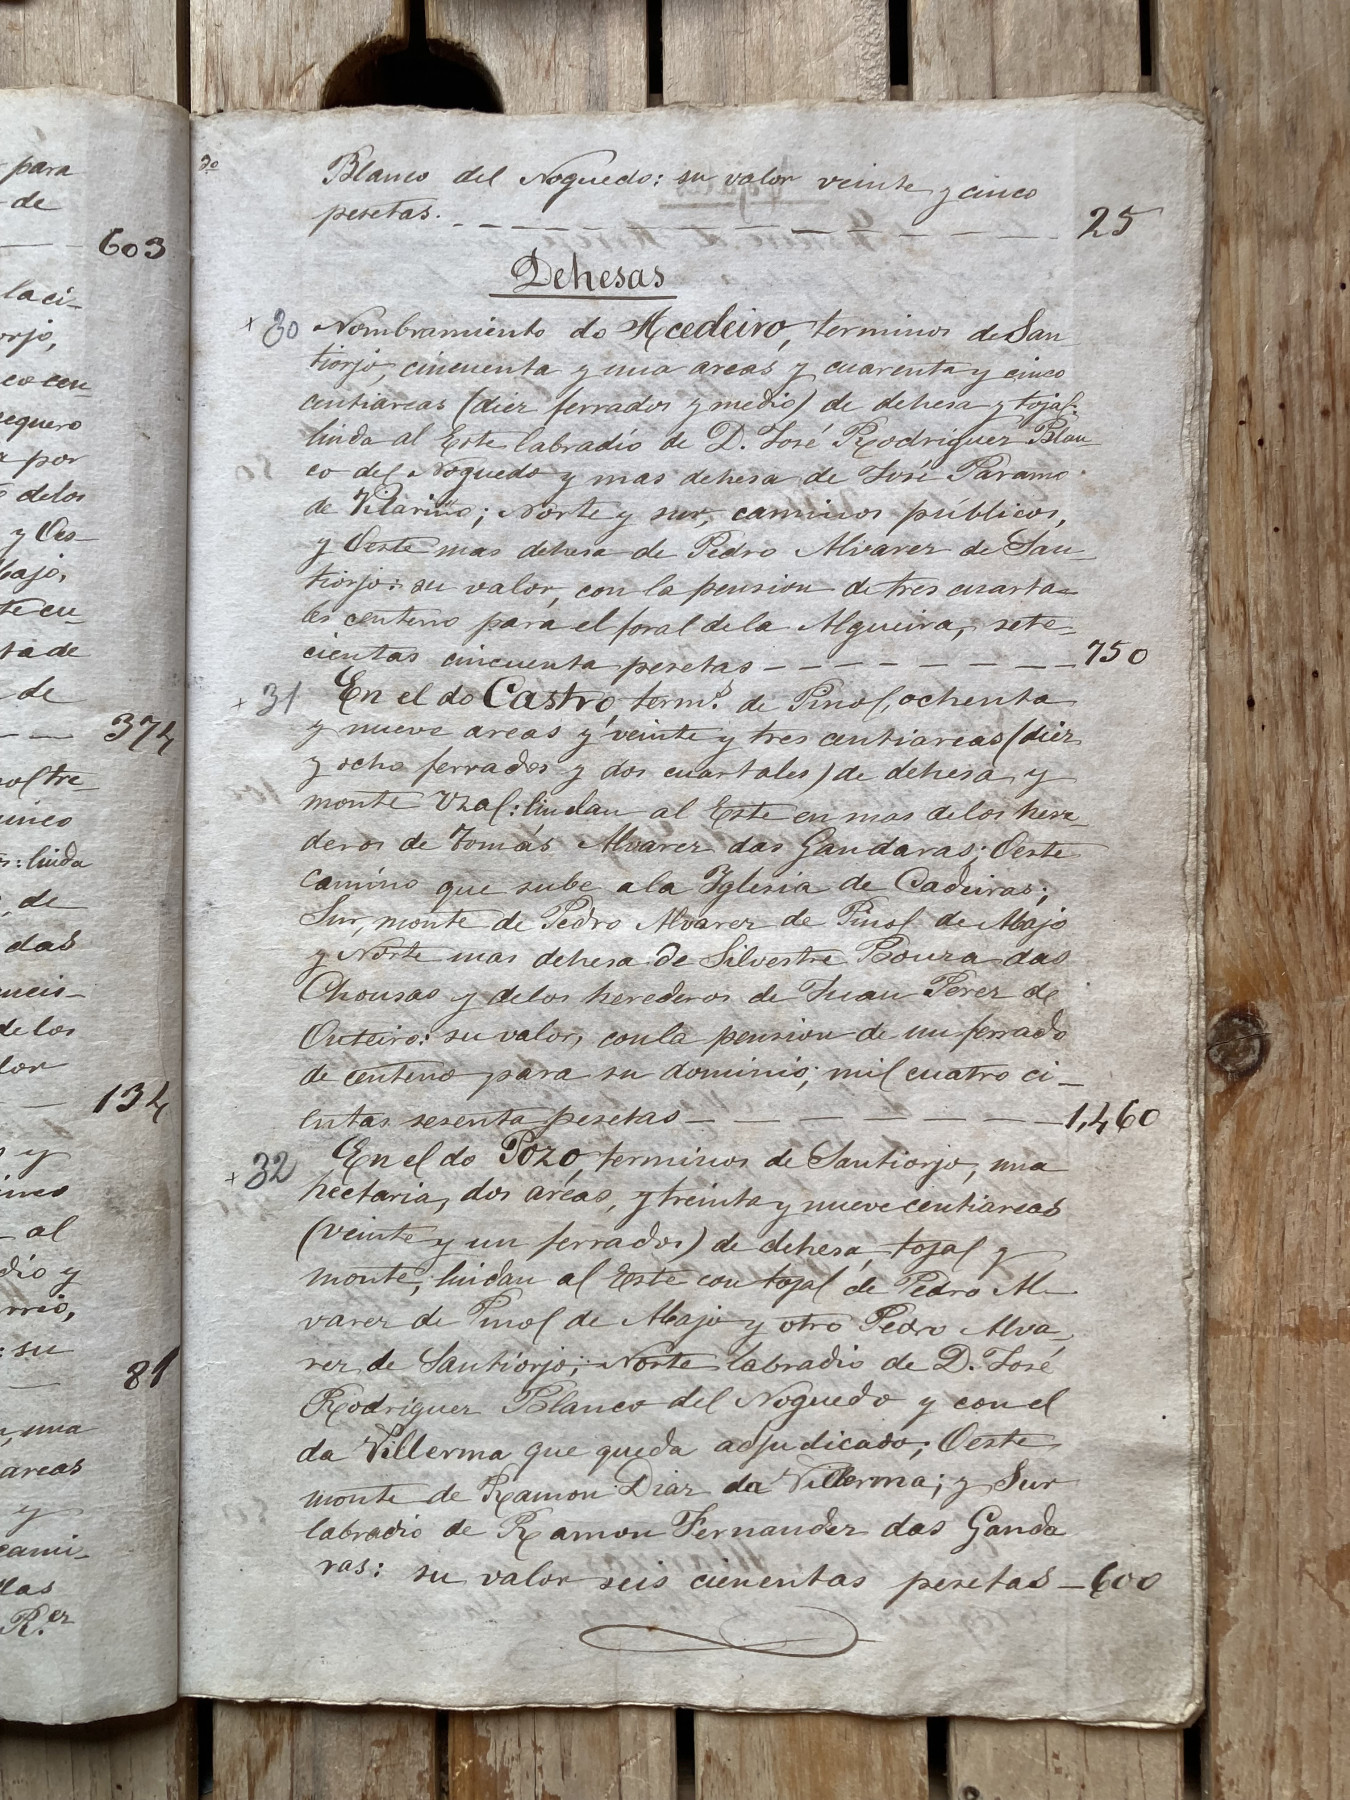 para
de
603
laci-
orjo,
co cen
sequero
por
delos
y Oes-
bajo,
te cu-
ta de
de
374
tre
cinco
: linda
de
das
ueis-
de los
lor
134
y
cinco
al
dio y
rreo,
: su
81
una
areas
y
cami-
llas
R.ez
30
Blanco del Noguedo: su valor veinte y cinco
pesetas. 25
Dehesas
+ 30 Nombramiento do Acedeiro, terminos de San
tiorjo, cincuenta y una areas y cuarenta y cinco
centiareas (diez ferrados y medio) de dehesa y tojal:
linda al Este labradio de D. José Rodriguez Blan
co del Noguedo y mas dehesa de José Paramo
de Vilariño; Norte y sur, caminos públicos,
y Oeste mas dehesa de Pedro Alvarez de San
tiorjo: su valor, con la pension de tres cuarta-
les centeno para el foral de la Algueira, sete-
cientas cincuenta pesetas 750
+ 31 En el do Castro, term.s de Pinol, ochenta
y nueve areas y veinte y tres centiareas (diez
y ocho ferrados y dos cuartales) de dehesa y
monte Uzal: lindan al Este en mas delos here-
deros de Tomás Alvarez das Gandaras; Oeste
camino que sube ala Yglesia de Cadeiras;
Sur, monte de Pedro Alvarez de Pinol de Abajo
y Norte mas dehesa de Silvestre Bouza das
Chousas y delos herederos de Juan Perez de
Outeiro: su valor, conla pension de un ferrado
de centeno para su dominio; mil cuatro ci-
entas sesenta pesetas 1,460
+ 32 En el do Pozo, terminos de Santiorjo, una
hectaria, dos aréas, y treinta y nueve centiareas
(veinte y un ferrados) de dehesa, tojal y
monte; lindan al Este con tojal de Pedro Al-
varez de Pinol de Abajo y otro Pedro Alva-
rez de Santiorjo; Norte labradio de D. José
Rodriguez Blanco del Noguedo y con el
da Villerma que queda adjudicado; Oeste
monte de Ramon Diaz da Villerma; y Sur
labradio de Ramon Fernandez das Ganda
ras: su valor seis cienentas pesetas 600